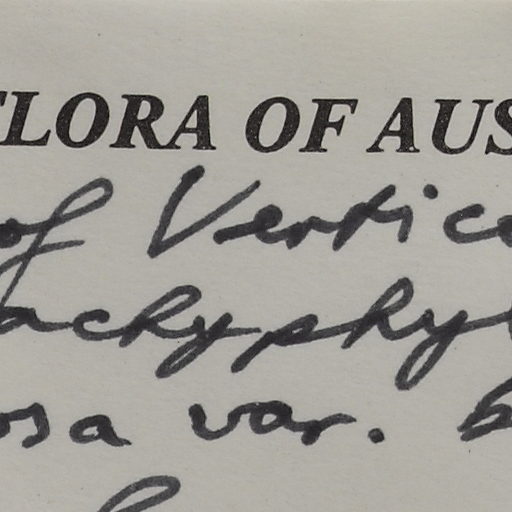 FLORA OF AUS
of Vertice
achyphyl
osa var. b